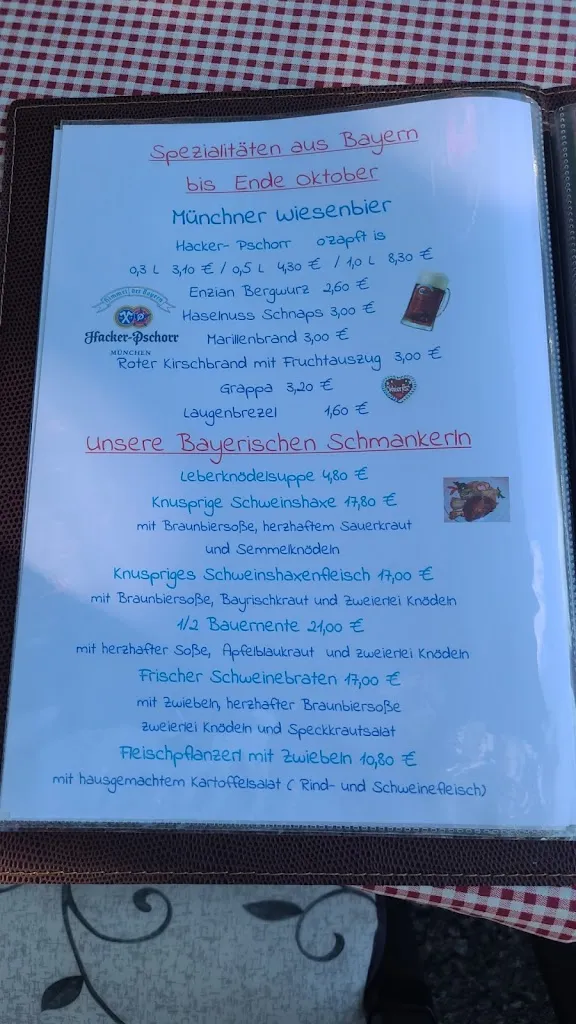 Spezialitäten aus Bayern
bis Ende Oktober
Münchner Wiesenbier
Hacker-Pschorr ozapft is
0,3 L 3,10 € / 0,5 L 4,30 € / 1,0 L 8,30 €
Enzian Bergwurz 2,60 €
Himmel der Bayern
Haselnuss Schnaps 3,00 €
Hacker-Pschorr
MÜNCHEN
Marillenbrand 3,00 €
Roter Kirschbrand mit Fruchtauszug 3,00 €
Grappa 3,20 €
Laugenbrezel 1,60 €
Unsere Bayerischen Schmankerln
Leberknödelsuppe 4,80 €
Knusprige Schweinshaxe 17,80 €
mit Braunbiersoße, herzhaftem Sauerkraut
und Semmelknödeln
Knuspriges Schweinshaxenfleisch 17,00 €
mit Braunbiersoße, Bayrischkraut und zweierlei Knödeln
1/2 Bauernente 21,00 €
mit herzhafter Soße, Apfelblaukraut und zweierlei Knödeln
Frischer Schweinebraten 17,00 €
mit Zwiebeln, herzhafter Braunbiersoße
zweierlei Knödeln und Speckkrautsalat
Fleischpflanzerl mit Zwiebeln 10,80 €
mit hausgemachtem Kartoffelsalat ( Rind- und Schweinefleisch)